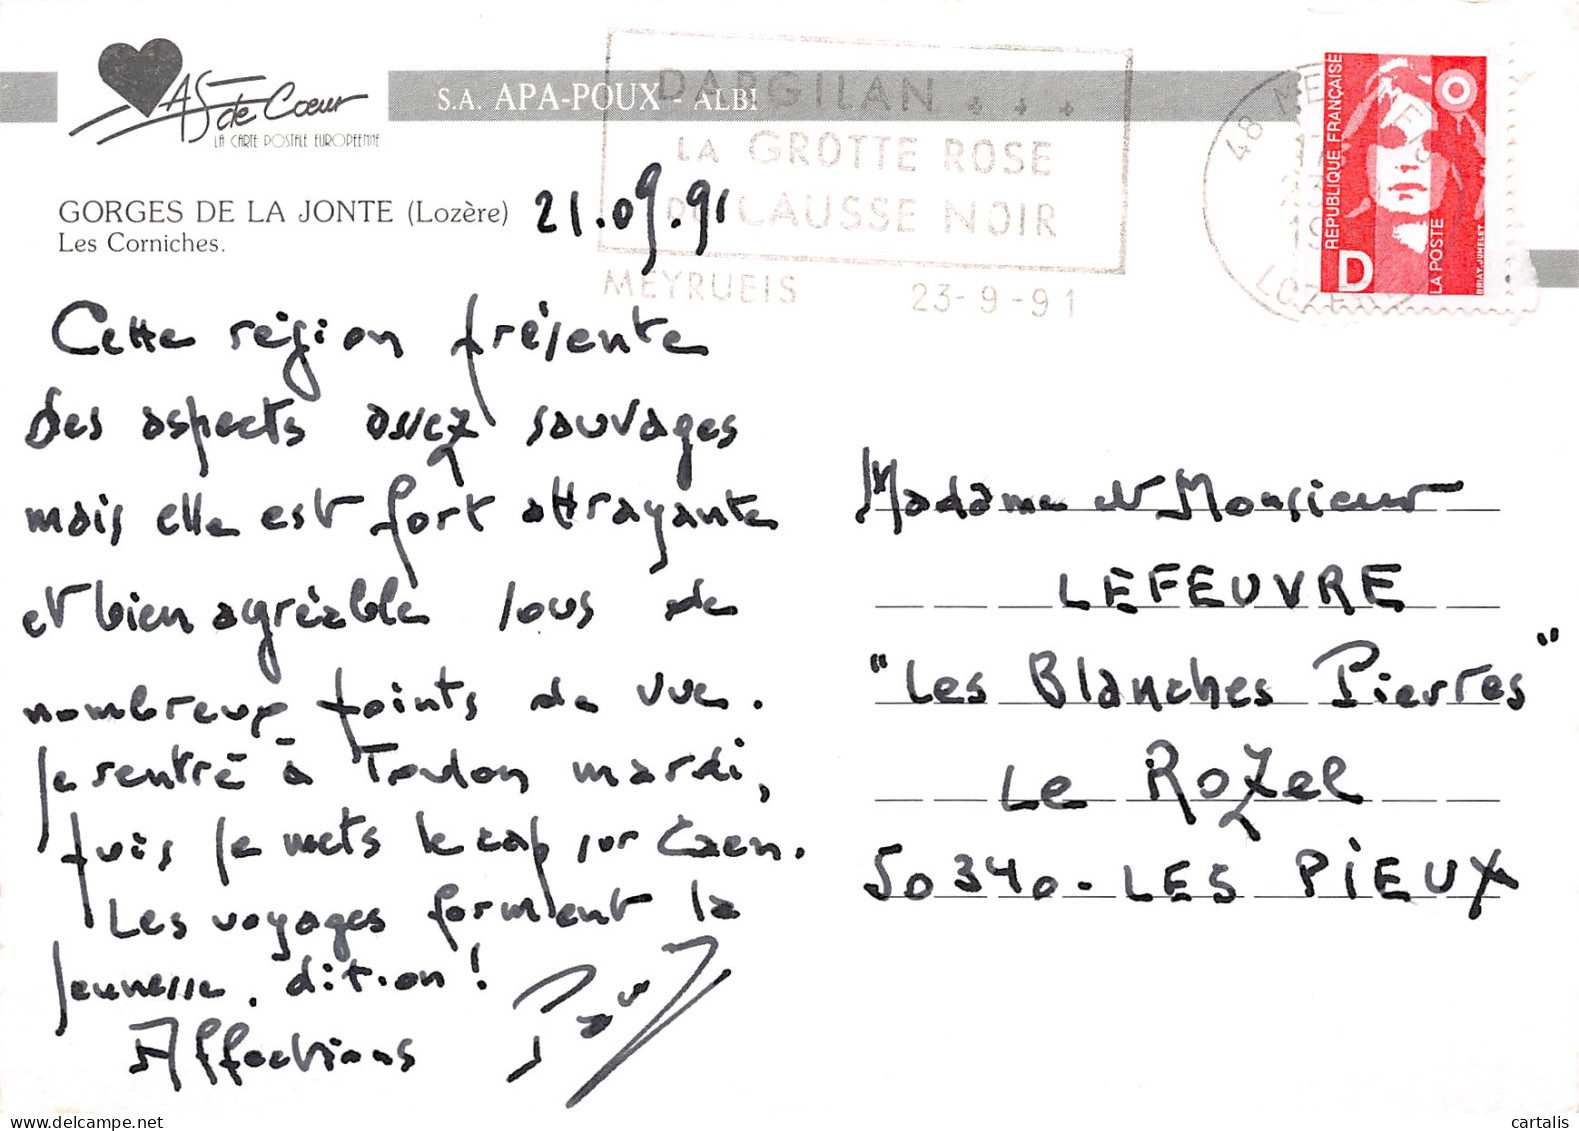 AS de Coeur
LA CARTE POSTALE EUROPÉENNE
S.A. APA-POUX - ALBI
DARGILAN
LA GROTTE ROSE
DU CAUSSE NOIR
MEYRUEIS 23-9-91
48 MEYRUEIS
LOZERE
RÉPUBLIQUE FRANÇAISE
D
LA POSTE
BRIAT, JUMELET
GORGES DE LA JONTE (Lozère)
Les Corniches.
21.09.91
Cette région présente
des aspects assez sauvages
mais elle est fort attrayante
et bien agréable sous de
nombreux points de vue.
Je rentre à Toulon mardi,
puis je mets le cap sur Caen.
Les voyages forment la
jeunesse, dit-on !
Affections Paul
Madame et Monsieur
LEFEUVRE
"Les Blanches Pierres"
Le Rozel
50340. LES PIEUX
cartalis
www.delcampe.net